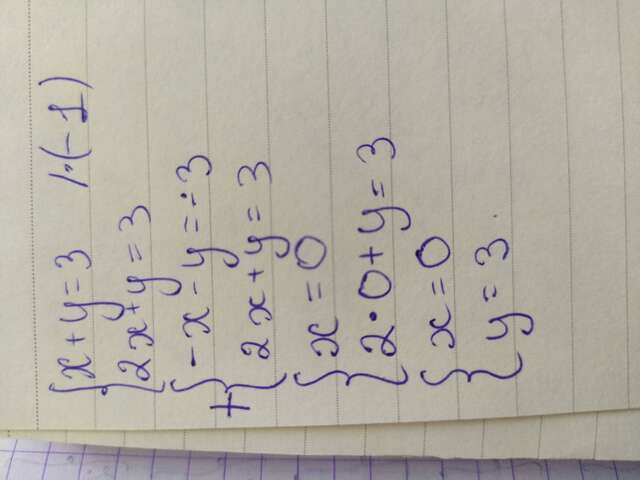 {x+y=3 /·(-1)
{2x+y=3
{-x-y=-3
+{2x+y=3
{x=0
{2·0+y=3
{x=0
{y=3.